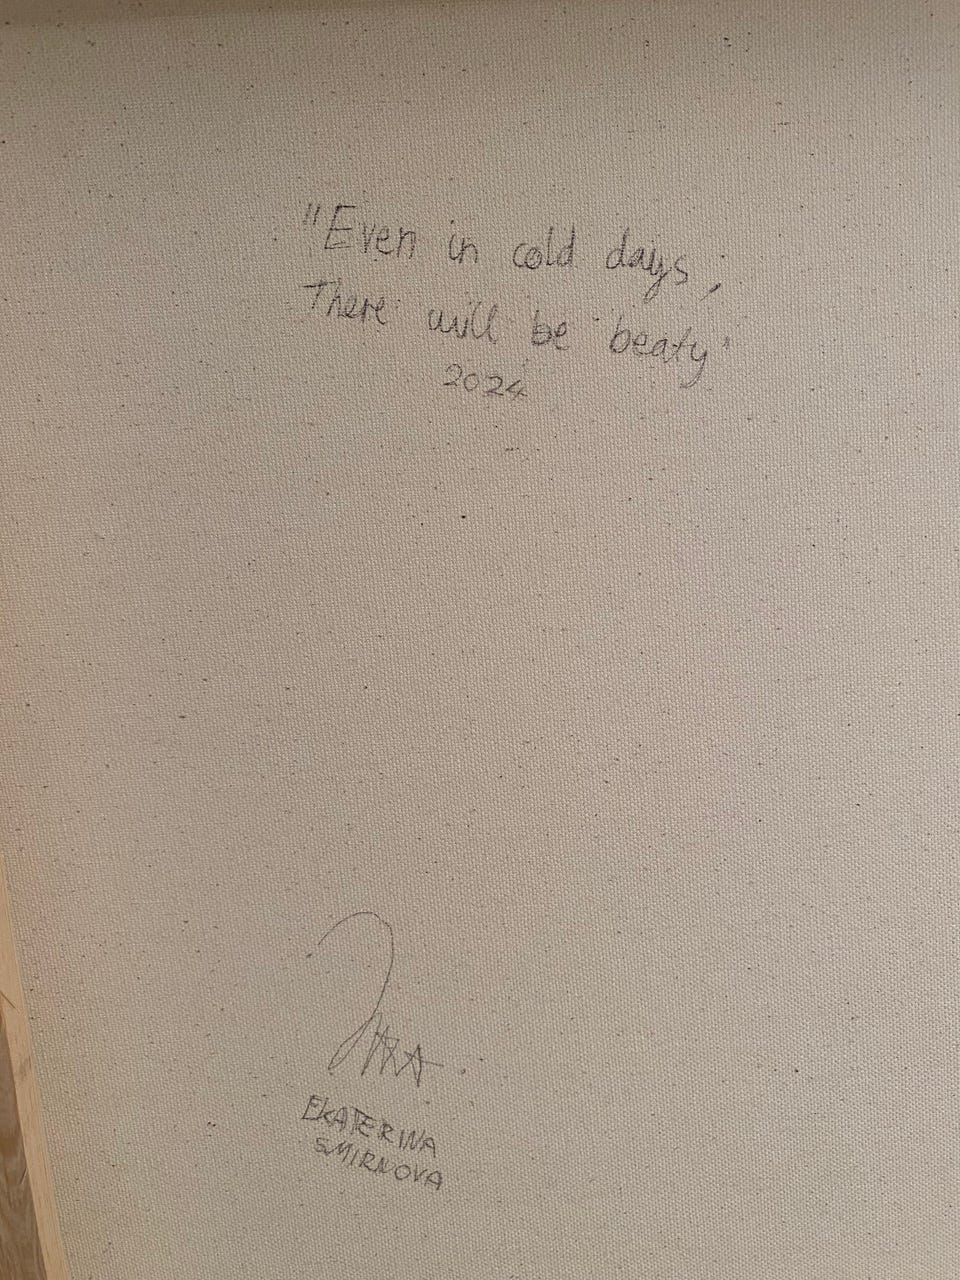 "Even in cold days,
There will be beaty"
2024
EKATERINA
SMIRNOVA